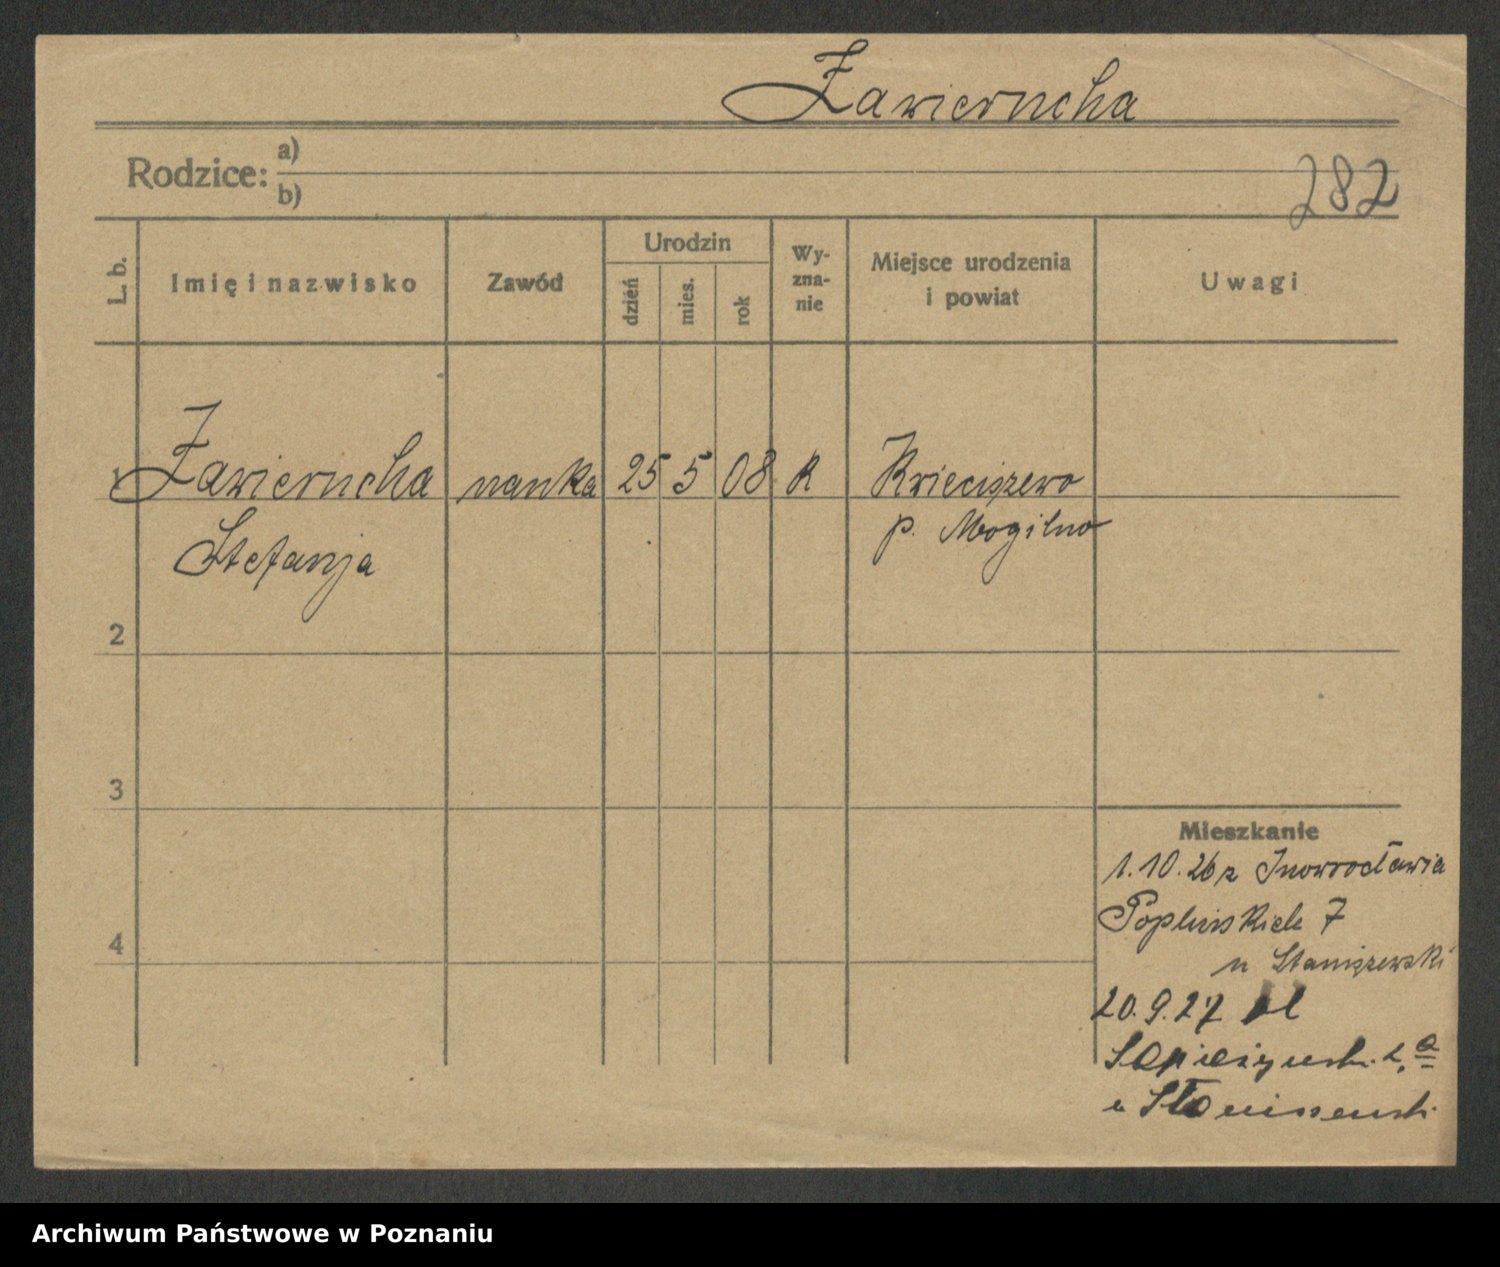 Zawierucha
Rodzice: a)
b)
282
L. b.
Imię i nazwisko
Zawód
Urodzin
dzień
mies.
rok
Wy-
zna-
nie
Miejsce urodzenia
i powiat
Uwagi
1 Zawierucha nauka 25 5 08 K Kwieciszewo
Stefanja p. Mogilno
2
3
4
Mieszkanie
1.10.26 z Inowrocławia
Poplińskich 7
u Staniszewski
20.9.27 Pl
Sapieżyński
u
Archiwum Państwowe w Poznaniu